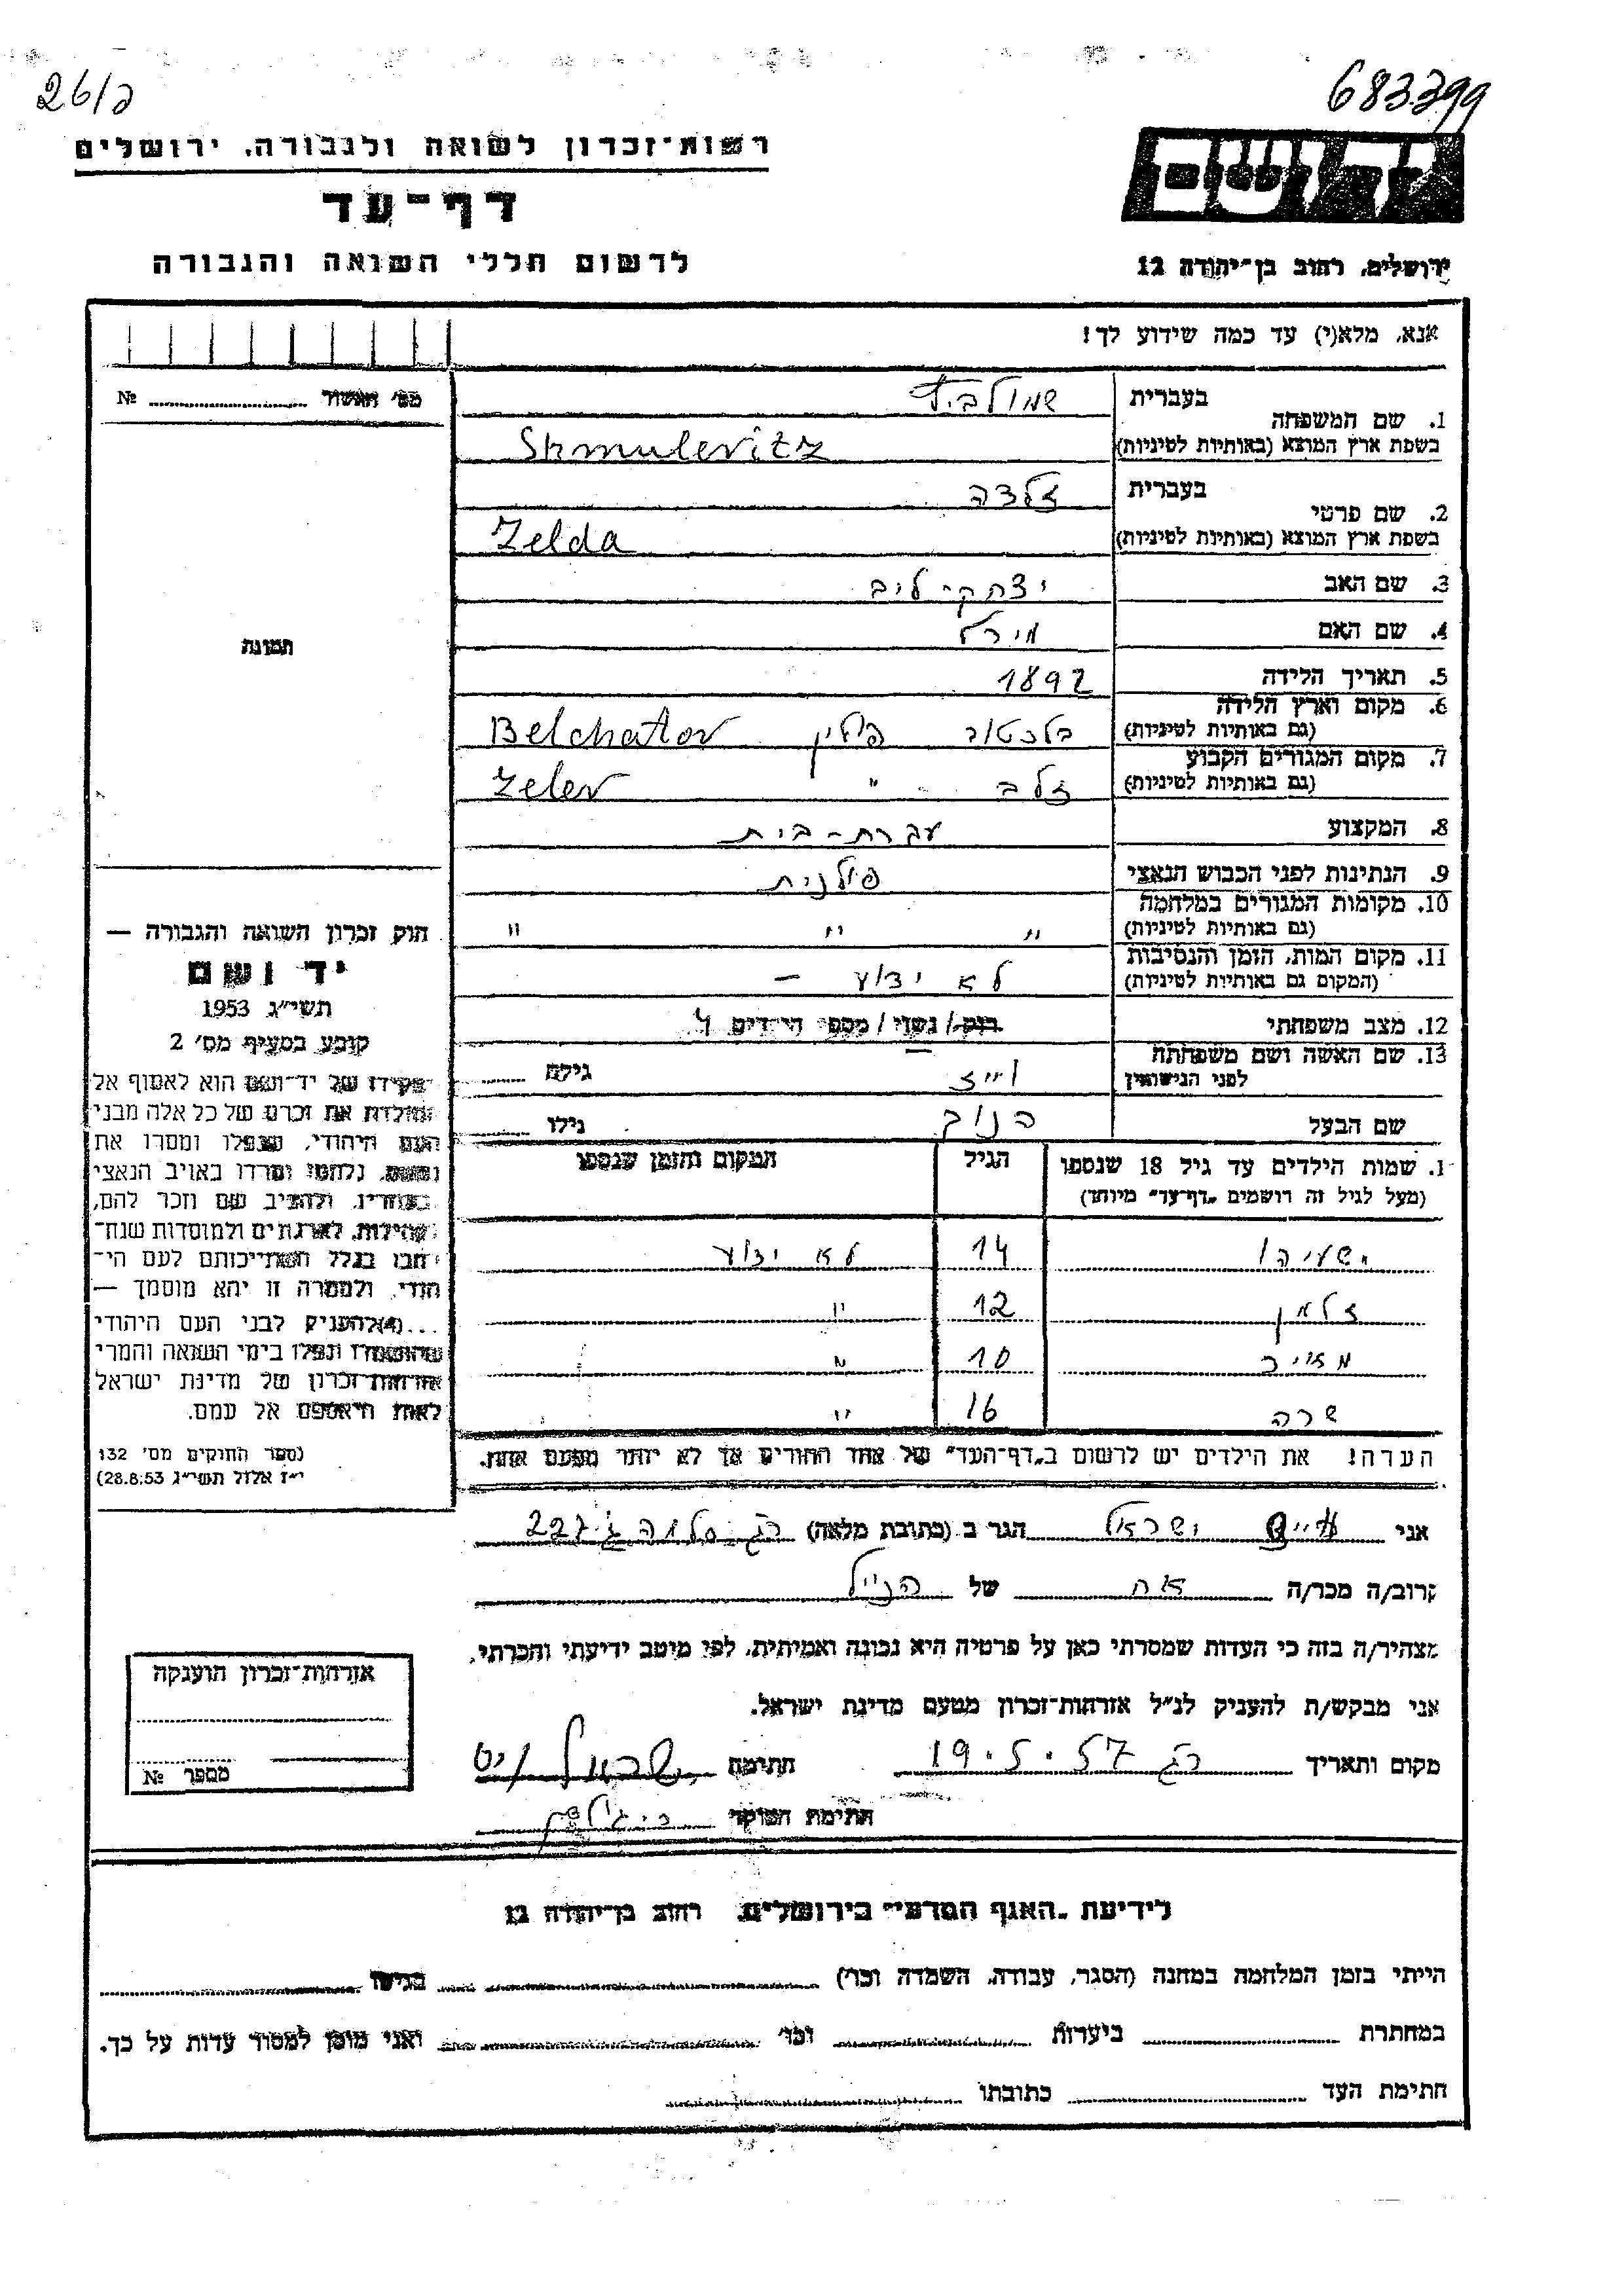 26/ג
683399
רשות־זכרון לשואה ולגבורה, ירושלים
דף־עד
לרשום חללי השואה והגבורה
יד ושם
ירושלים, רחוב בן־יהודה 12
אנא, מלא(י) עד כמה שידוע לך!
מס' האשור № 
1. שם המשפחה
בעברית שמולביץ
בשפת ארץ המוצא (באותיות לטיניות) Shmulevitz
2. שם פרטי
בעברית זלדה
בשפת ארץ המוצא (באותיות לטיניות) Zelda
3. שם האב יצחק־ליב
4. שם האם מירל
תמונה
5. תאריך הלידה 1892
6. מקום וארץ הלידה
(גם באותיות לטיניות) בלכטוב פולין Belchatov
7. מקום המגורים הקבוע
(גם באותיות לטיניות) זלב " Zelev
8. המקצוע עקרת-בית
9. הנתינות לפני הכבוש הנאצי פולנית
10. מקומות המגורים במלחמה
(גם באותיות לטיניות) " " "
11. מקום המות, הזמן והנסיבות
(המקום גם באותיות לטיניות) לא ידוע –
12. מצב משפחתי רוק/ נשוי/ מספר הילדים 4
13. שם האשה ושם משפחתה
לפני הנישואין וייז גילה
שם הבעל הנוך גילו
חוק זכרון השואה והגבורה —
יד ושם
תשי"ג 1953
קובע בסעיף מס' 2
תפקידו של יד־ושם הוא לאסוף אל
המולדת את זכרם של כל אלה מבני
העם היהודי, שנפלו ומסרו את
נפשם, נלחמו ומרדו באויב הנאצי
ובעוזריו, ולהציב שם וזכר להם,
לקהילות, לארגונים ולמוסדות שנח־
רבו בגלל השתייכותם לעם הי־
הודי, ולמטרה זו יהא מוסמך —
...(4) להעניק לבני העם היהודי
שהושמדו ונפלו בימי השואה והמרי
אזרחות־זכרון של מדינת ישראל
לאות היאספם אל עמם.
(ספר החוקים מס' 132
י"ז אלול תשי"ג 28.8.53)
1. שמות הילדים עד גיל 18 שנספו
(מעל לגיל זה רושמים „דף־עד" מיוחד)
הגיל
המקום והזמן שנספו
ישעיהו 14 לא ידוע
זלמן 12 "
מאיר 10 "
שרה 16 "
הערה! את הילדים יש לרשום ב„דף־העד" של אחד ההורים אך לא יותר מפעם אחת.
אני וייס ישראל הגר ב (כתובת מלאה) רג 227
קרוב/ה מכר/ה אח של הנ"ל
מצהיר/ה בזה כי העדות שמסרתי כאן על פרטיה היא נכונה ואמיתית, לפי מיטב ידיעתי והכרתי.
אני מבקש/ת להעניק לנ"ל אזרחות־זכרון מטעם מדינת ישראל.
מקום ותאריך רג 19.5.57 חתימה ישראל וייס
חתימת הפוקד
אזרחות־זכרון הוענקה
מספר №
לידיעת „האגף המדעי" בירושלים, רחוב בן־יהודה 12
הייתי בזמן המלחמה במחנה (הסגר, עבודה, השמדה וכו') בגיטו
במחתרת ביערות וכו' ואני מוכן למסור עדות על כך.
חתימת העד כתובתו